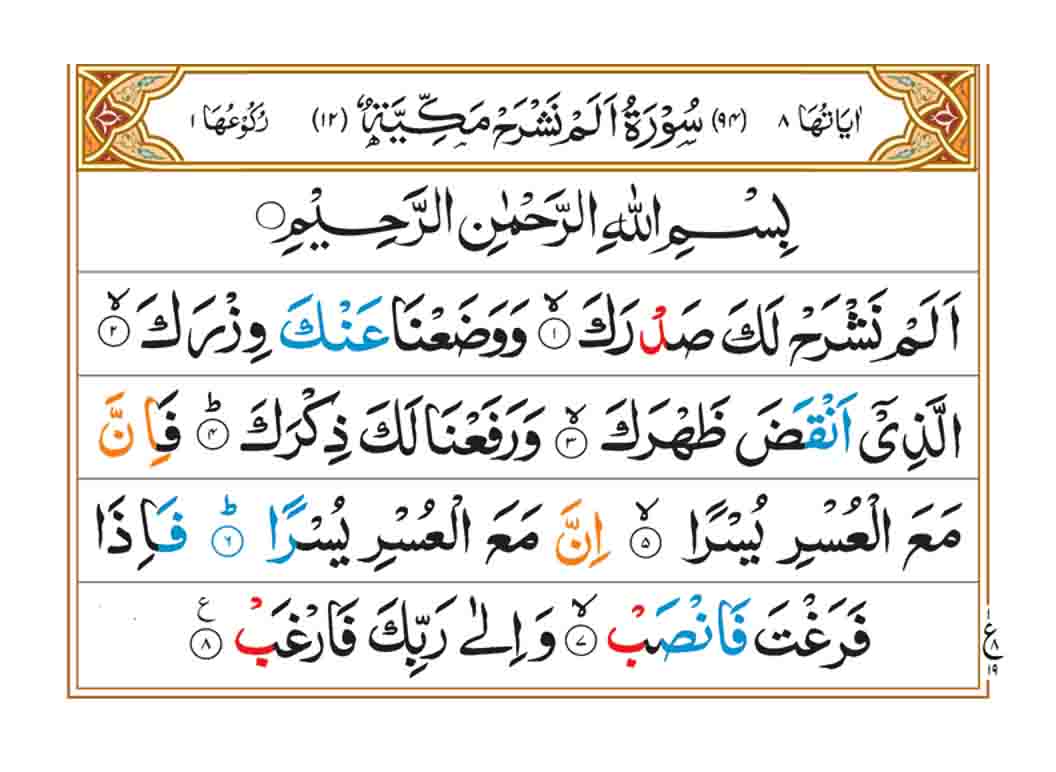 اٰیَاتُهَا ۸ (۹۴) سُوْرَةُ اَلَمْ نَشْرَحْ مَكِّیَّةٌ (۱۲) رُكُوْعُهَا ۱
بِسْمِ اللهِ الرَّحْمٰنِ الرَّحِیْمِ
اَلَمْ نَشْرَحْ لَكَ صَدْرَكَ ۙ۱ وَوَضَعْنَا عَنْكَ وِزْرَكَ ۙ۲
الَّذِیْۤ اَنْقَضَ ظَهْرَكَ ۙ۳ وَرَفَعْنَا لَكَ ذِكْرَكَ ؕ۴ فَاِنَّ
مَعَ الْعُسْرِ یُسْرًا ۙ۵ اِنَّ مَعَ الْعُسْرِ یُسْرًا ؕ۶ فَاِذَا
فَرَغْتَ فَانْصَبْ ۙ۷ وَاِلٰی رَبِّكَ فَارْغَبْ ۸ ع
۱ ع ۸ ۱۹